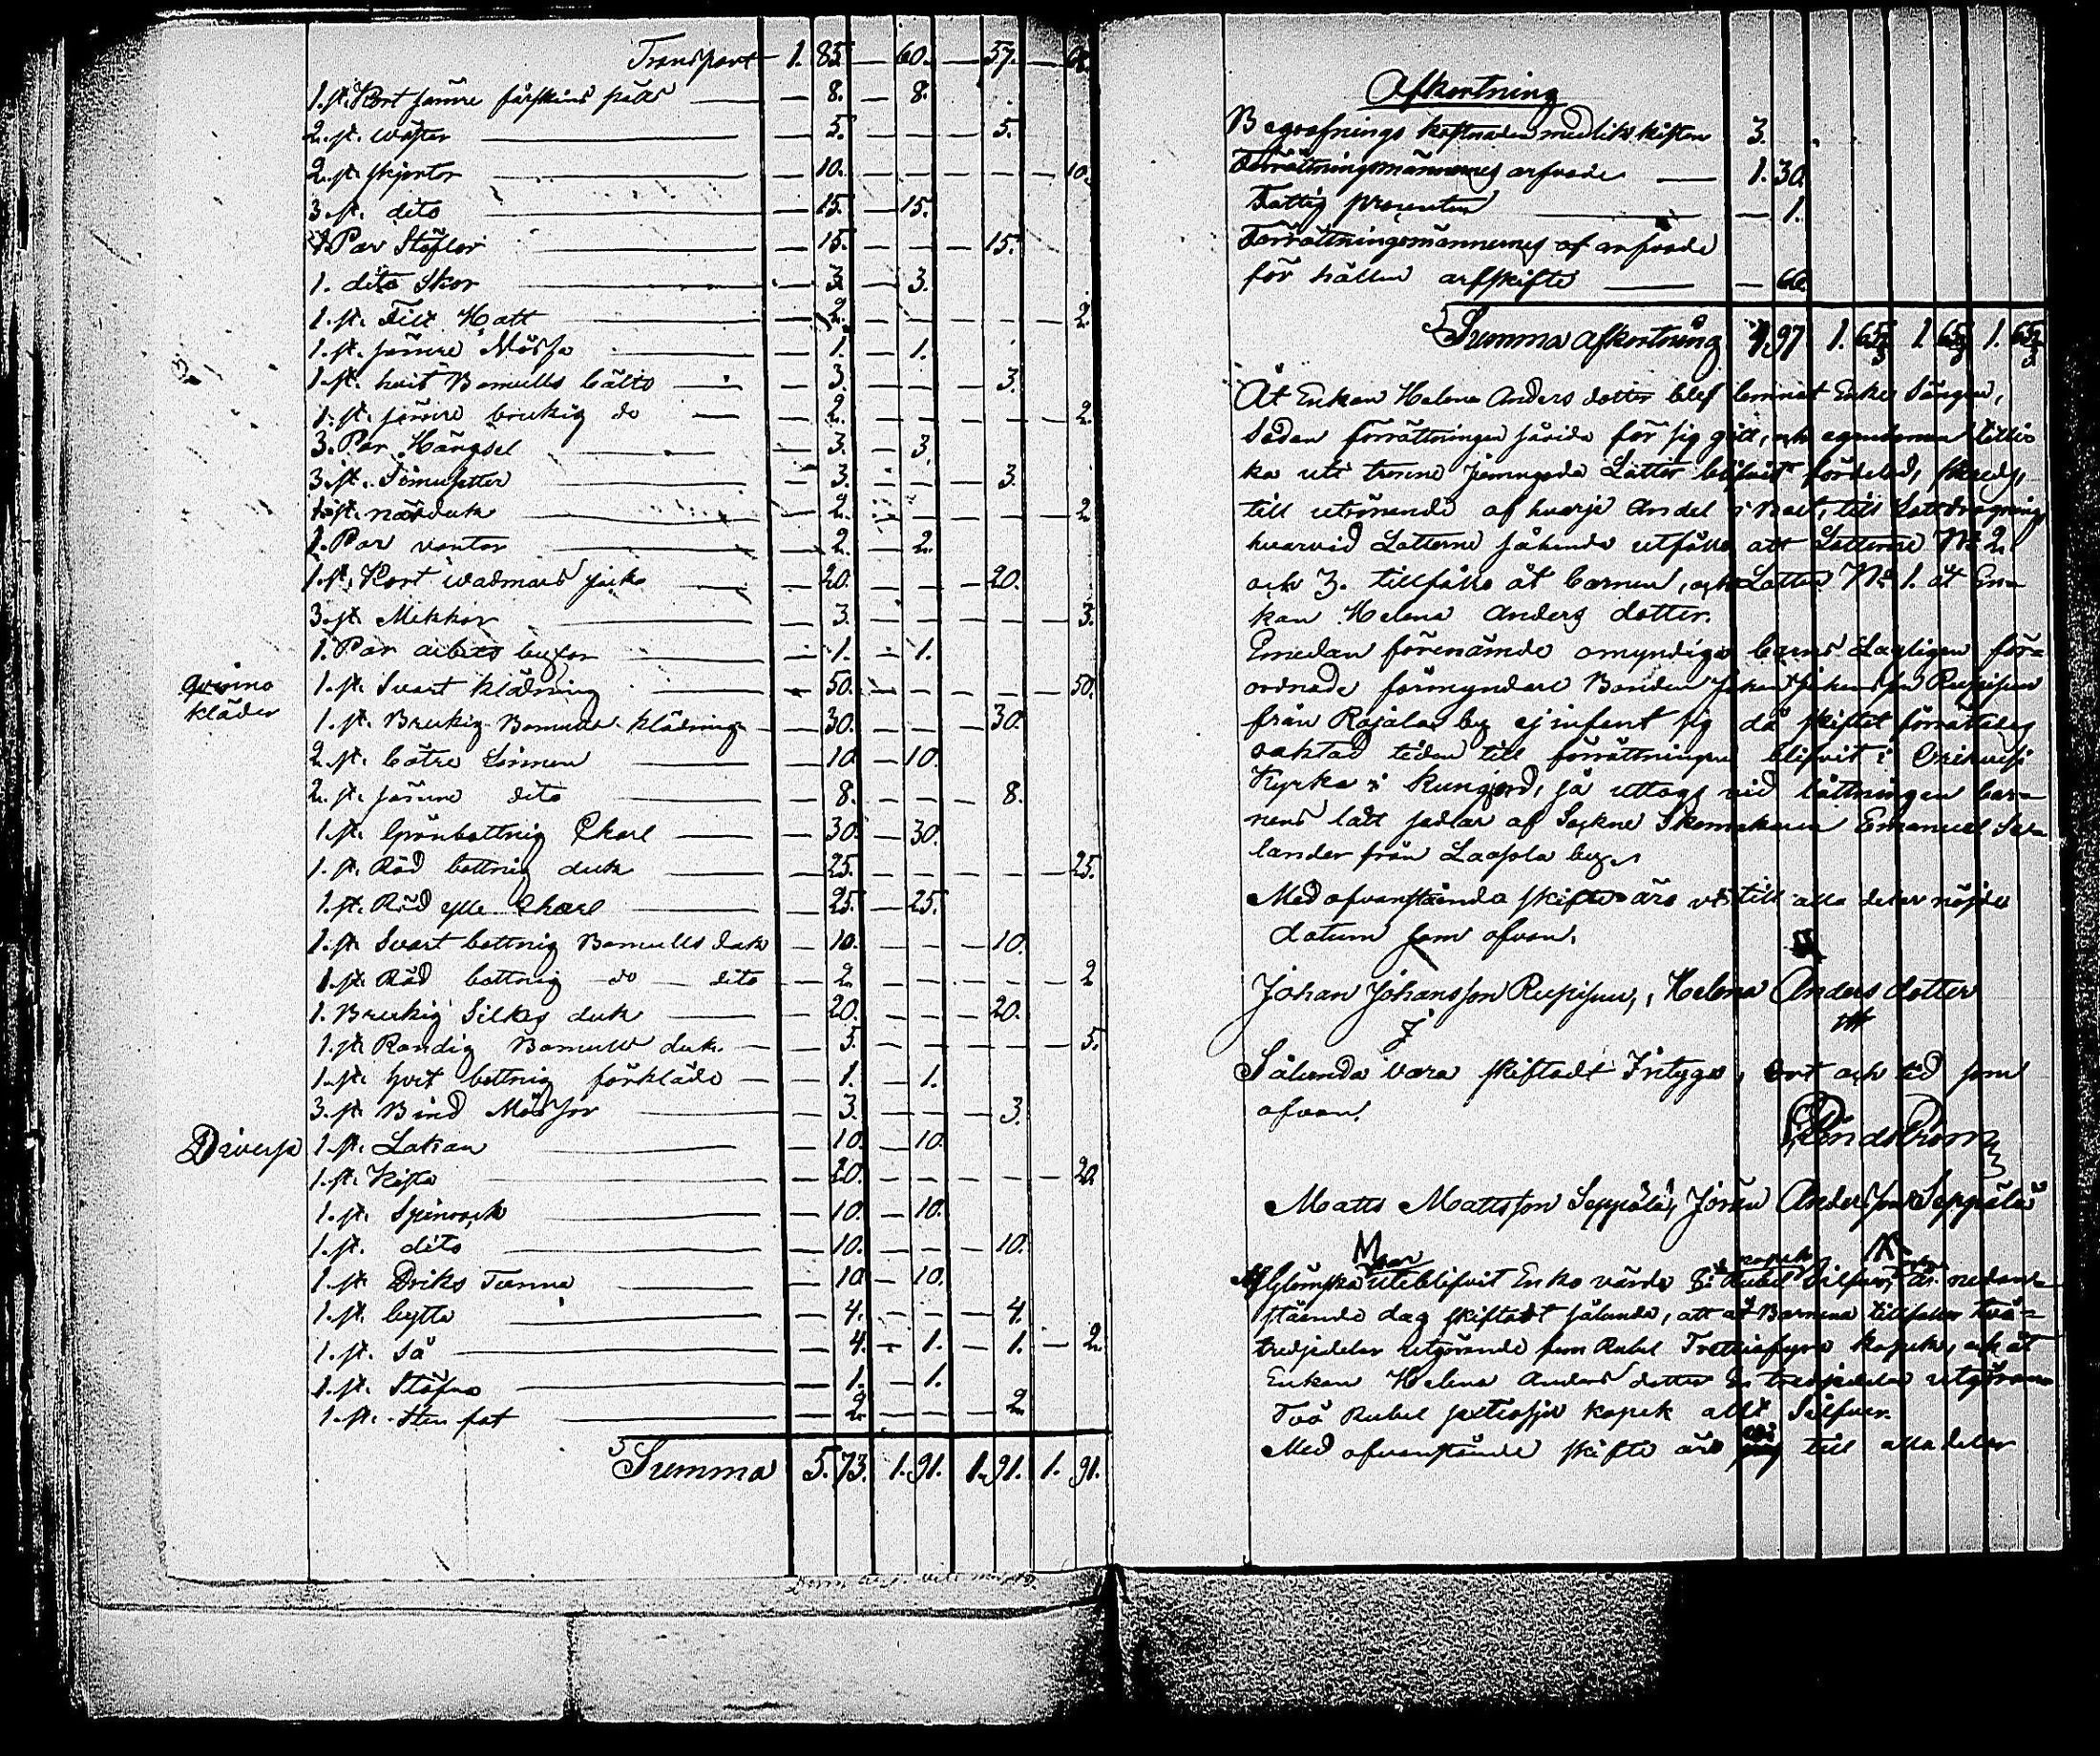 Transport — 1. 83. — 60. — 57. —
1. st. Kort sämre fårskins päls — — 8. — 8.
2. st. wäster — — 5. — — — 5.
2. st. skjortor — — 10. — — — — — 10.
3. st. dito — — 15. — 15.
1. Par Stöflor — — 15. — — — 15.
1. dito Skor — — 3. — 3.
1. st. Filt Hatt — — 2. — — — — — 2.
1. st. sämre Mössa — — 1. — 1.
1. st. hvit Bomulls bälte — — 3. — — — 3.
1. st. sämre brukig do — — 2. — — — — — 2.
3. Par Hängsel — — 3. — 3.
3. st. — — 3. — — — 3.
1. st. näsduk — — 2. — — — — — 2.
1. Par vantar — — 2. — 2.
1. st. Kort wadmals — — 20. — — — 20.
3. st. Mekkor — — 3. — — — — — 3.
1. Par arbets byxor — — 1. — 1.
Qvinns 1. st. Svart klädning — — 50. — — — — — 50.
kläder
1. st. Brukig Bomulls klädning — — 30. — — — 30.
2. st. bätre Linnen — — 10. — 10.
2. st. sämre dito — — 8. — — — 8.
1. st. Grönbottnig Charl — — 30. — 30.
1. st. Röd bottnig duk — — 25. — — — — — 25.
1. st. Röd ylle Charl — — 25. — 25.
1. st. Svart bottnig Bomulls duk — — 10. — — — 10.
1. st. Röd bottnig do — dito — — 2. — — — — — 2
1. Brukig Silkes duk — — 20. — — — 20.
1. st. Randig Bomulls duk — — 5. — — — — — 5.
1. st. hvit bottnig förkläde — — 1. — 1.
3. st. Bind Mössor — — 3. — — — 3.
Diverse 1. st. Lakan — — 10. — 10.
1. st. Kista — — 20. — — — — — 20.
1. st. Spinrock — — 10. — 10.
1. st. dito — — 10. — — — 10.
1. st. Driks Tunna — — 10. — 10.
1. st. bytta — — 4. — — — 4.
1. st. Så — — 4. — 1. — 1. — 2.
1. st. Stäfva — — 1. — 1.
1. st. Sten fat — — 2. — — — 2.
Summa 5.73. 1.91. 1.91. 1.91.
Afkortning
Begrafnings kostnaden med likkistan 3.
Förrättningsmännernes arfvode — 1.30.
Fattig procenten — — 1.
Förrättningsmännernes af arfvode
för hållen arfskifte — — 66.
Summa afkortning 4.97 1.65 2/3 1.65 2/3 1.65 2/3
Åt Enkan Helena Anders dotter blef lemnat Enke Sängen,
Sedan förrättningen såvida för sig gått, och egendomen tillis
ka uti trenne jemngoda Lotter blifvit fördelad, skreds,
till utrönande af hvarje Andel i boet, till Lottdragning
hvarvid Lotterne sålunda utföllo att Lotterne No 2
och 3. tillföllo åt barnen, och Lotten No 1. åt En-
kan Helena Anders dotter.
Emedan förenämde omyndiga barns Lagligen för-
ordnade förmyndare Bonden Johan Johansson
från Rajala by ej infant sig då skiftet förrättades
oaktad tiden till förrättningen blifvit i
Kyrka i kungjord, så uttogs vid lottningen bar-
nens lått sedlar af Sockne Skomakaren Emanuel Se-
lander från Laasola by.
Med ofvanstående skifte äro vi till alla delar nöjde
datum som ofvan.
Johan Johansson, Helena Anders dotter
Sålunda vara skiftadt Intyga, ort och tid som
ofvan.
Matts Mattsson Seppälä, Jöran Andersson Seppälä
uteblifvit Enka värde Rubel kopek Silfver, är nedan-
stående dag skiftadt sålunda, att åt Barnena tillfaller två-
tredjedelar utgörande fem Rubel Trettiofyra kopek, och åt
Enkan Helena Anders dotter en tredjedel utgörande
Två Rubel sextiosju kopek allt Silfver.
Med ofvanstående skifte äro vi till alla delar